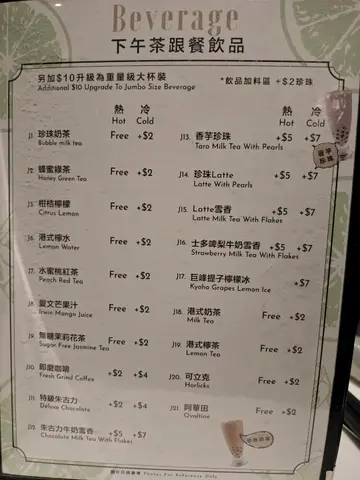 Beverage
下午茶跟餐飲品
另加$10升級為重量級大杯裝
Additional $10 Upgrade To Jumbo Size Beverage
*飲品加料區 +$2珍珠
熱 冷
Hot Cold
J1. 珍珠奶茶 Free +$2
Bubble milk tea
J2. 蜂蜜綠茶 Free +$2
Honey Green Tea
J3. 柑桔檸檬 Free +$2
Citrus Lemon
J4. 港式檸水 Free +$2
Lemon Water
J7. 水蜜桃紅茶 Free +$2
Peach Red Tea
J8. 愛文芒果汁 Free +$2
Irwin Mango Juice
J9. 無糖茉莉花茶 Free +$2
Sugar Free Jasmine Tea
J10. 即磨咖啡 +$2 +$4
Fresh Grind Coffee
J11. 特級朱古力 +$2 +$4
Deluxe Chocolate
J12. 朱古力牛奶雪香 +$5 +$7
Chocolate Milk Tea With Flakes
熱 冷
Hot Cold
J13. 香芋珍珠 +$5 +$7
Taro Milk Tea With Pearls
J14. 珍珠Latte +$5 +$7
Latte With Pearls
J15. Latte雪香 +$5 +$7
Latte Milk Tea With Flakes
J16. 士多啤梨牛奶雪香 +$5 +$7
Strawberry Milk Tea With Flakes
J17. 巨峰提子檸檬冰 +$7
Kyoho Grapes Lemon Ice
J18. 港式奶茶 Free +$2
Milk Tea
J19. 港式檸茶 Free +$2
Lemon Tea
J20. 可立克 Free +$2
Horlicks
J21. 阿華田 Free +$2
Ovaltine
香芋珍珠
珍珠奶茶
圖片只供參考 Photos For Reference Only